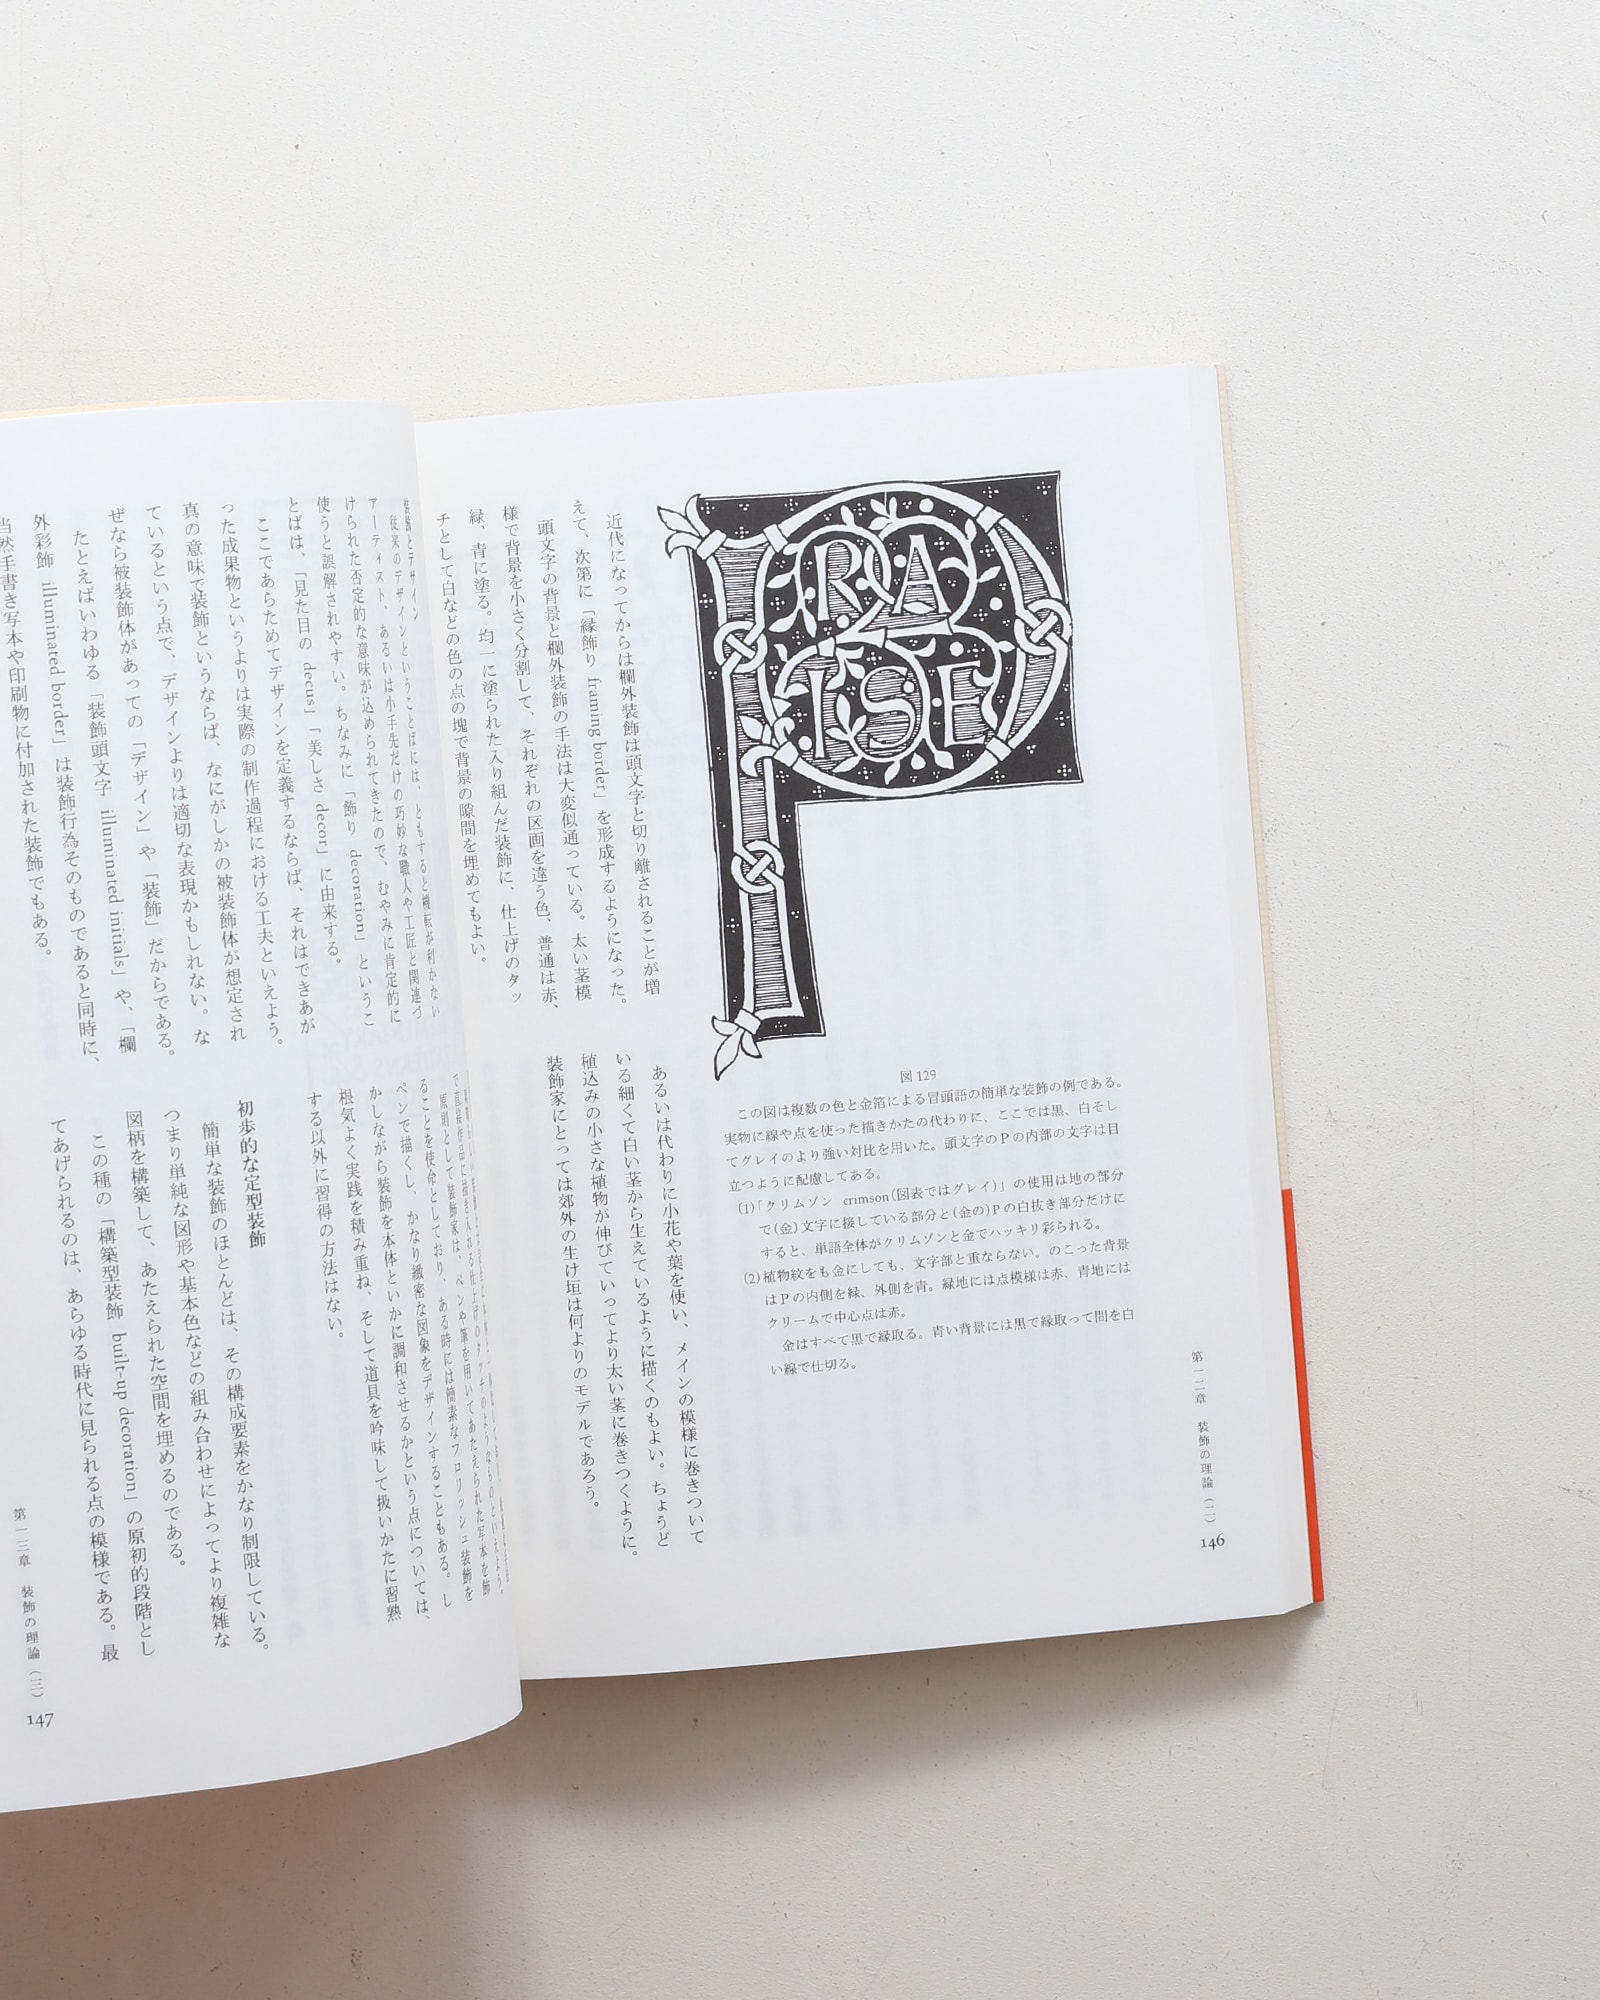 P
RA
ISE
図129
この図は複数の色と金箔による冒頭語の簡単な装飾の例である。
実物に線や点を使った描きかたの代わりに、ここでは黒、白そし
てグレイのより強い対比を用いた。頭文字のPの内部の文字は目
立つように配慮してある。
(1)「クリムゾン crimson(図表ではグレイ)」の使用は地の部分
で(金)文字に接している部分と(金の)Pの白抜き部分だけに
すると、単語全体がクリムゾンと金でハッキリ彩られる。
(2)植物紋をも金にしても、文字部と重ならない。のこった背景
はPの内側を緑、外側を青。緑地には点模様は赤、青地には
クリームで中心点は赤。
金はすべて黒で縁取る。青い背景には黒で縁取って間を白
い線で仕切る。
近代になってからは欄外装飾は頭文字と切り離されることが増
えて、次第に「縁飾り framing border」を形成するようになった。
頭文字の背景と欄外装飾の手法は大変似通っている。太い茎模
様で背景を小さく分割して、それぞれの区画を違う色、普通は赤、
緑、青に塗る。均一に塗られた入り組んだ装飾に、仕上げのタッ
チとして白などの色の点の塊で背景の隙間を埋めてもよい。
あるいは代わりに小花や葉を使い、メインの模様に巻きついて
いる細くて白い茎から生えているように描くのもよい。ちょうど
植込みの小さな植物が伸びていってより太い茎に巻きつくように。
装飾家にとっては郊外の生け垣は何よりのモデルであろう。
第一二章 装飾の理論(二)
146
装飾とデザイン
従来のデザインということばには、ともすると機転が利かない
アーティスト、あるいは小手先だけの巧妙な職人や工匠と関連づ
けられた否定的な意味が込められてきたので、むやみに肯定的に
使うと誤解されやすい。ちなみに「飾り decoration」というこ
とばは、「見た目の decus」「美しさ decor」に由来する。
ここであらためてデザインを定義するならば、それはできあが
った成果物というよりは実際の制作過程における工夫といえよう。
真の意味で装飾というならば、なにがしかの被装飾体が想定され
ているという点で、デザインよりは適切な表現かもしれない。な
ぜなら被装飾体があっての「デザイン」や「装飾」だからである。
たとえばいわゆる「装飾頭文字 illuminated initials」や、「欄
外彩飾 illuminated border」は装飾行為そのものであると同時に、
当然手書き写本や印刷物に付加された装飾でもある。
で直接作品に描き入れる仕上げのタッチのようなものといえよう。
原則として装飾家は、ペンや筆を用いてあたえられた写本を飾
ることを使命としており、ある時には簡素なフロリッシュ装飾を
ペンで描くし、かなり緻密な図象をデザインすることもある。し
かしながら装飾を本体といかに調和させるかという点については、
根気よく実践を積み重ね、そして道具を吟味して扱いかたに習熟
する以外に習得の方法はない。
初歩的な定型装飾
簡単な装飾のほとんどは、その構成要素をかなり制限している。
つまり単純な図形や基本色などの組み合わせによってより複雑な
図柄を構築して、あたえられた空間を埋めるのである。
この種の「構築型装飾 built-up decoration」の原初的段階とし
てあげられるのは、あらゆる時代に見られる点の模様である。最
第一三章 装飾の理論(三)
147